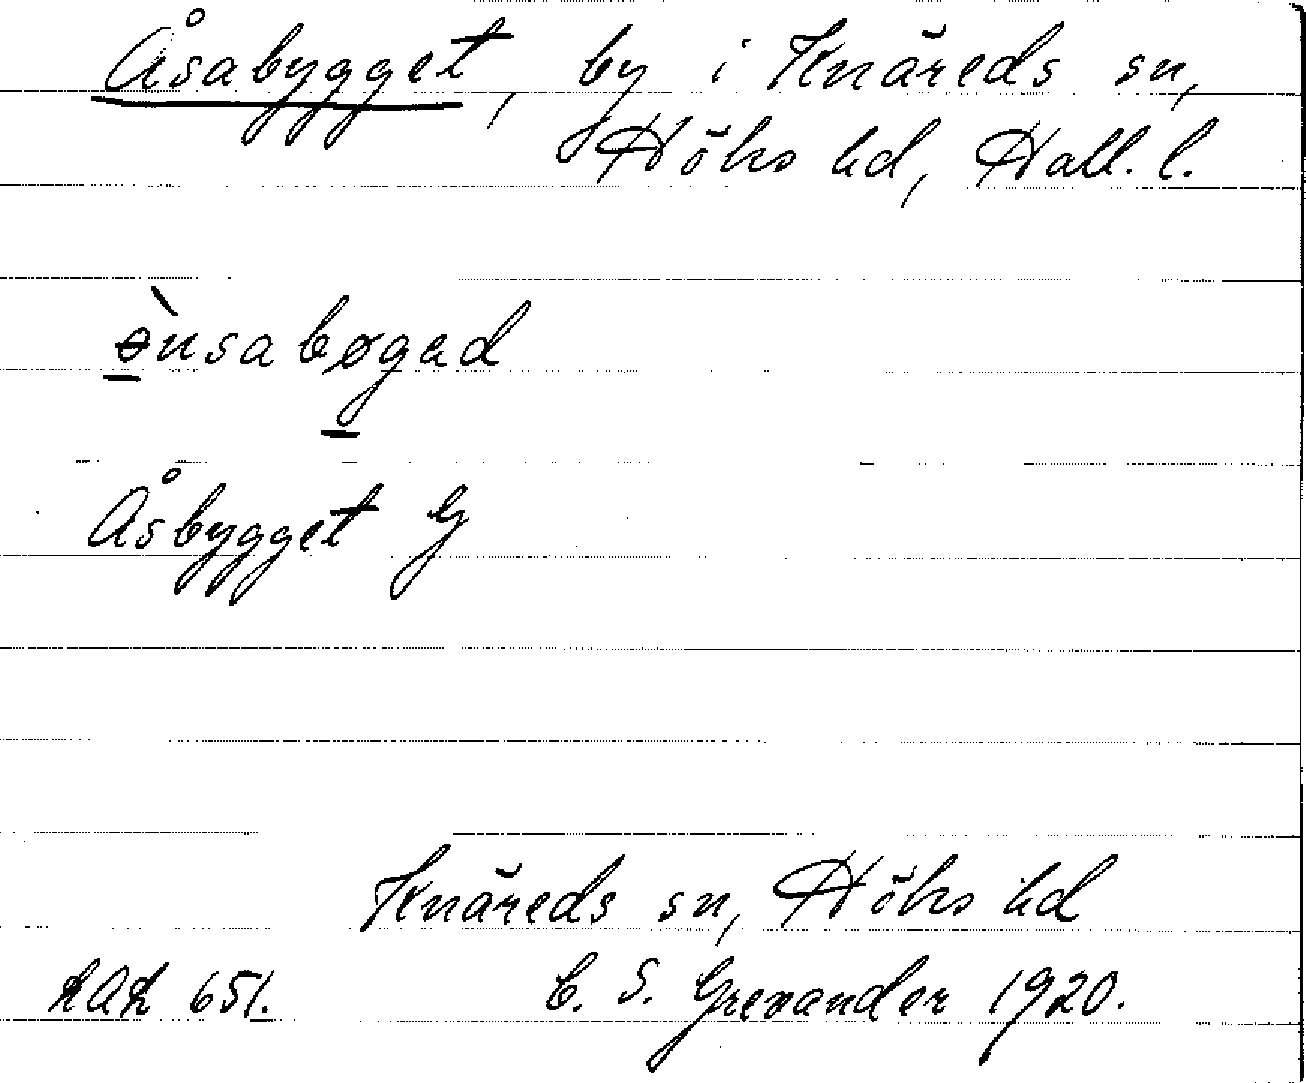 Åsabygget, by i Knäreds sn,
Höks hd, Hall. l.
Åsbygget G
Knäreds sn, Höks hd
LAL 651. C. S. Grevander 1920.